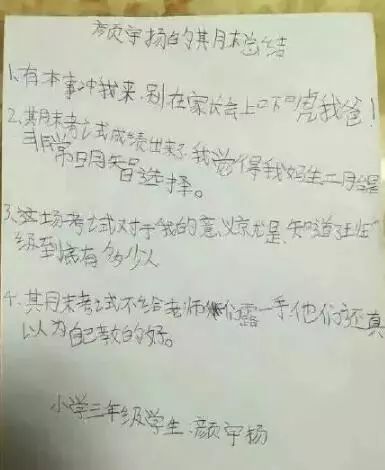 颜宇扬的期末总结
1.有本事冲我来,别在家长会上吓唬我爸!
2.期末考试成绩出来了,我觉得我妈生二胎是
非常明智选择。
3.这场考试对于我的意义就是,知道了班
级到底有多少人
4.期末考试不给老师们露一手,他们还真
以为自己教的好。
小学三年级学生:颜宇扬